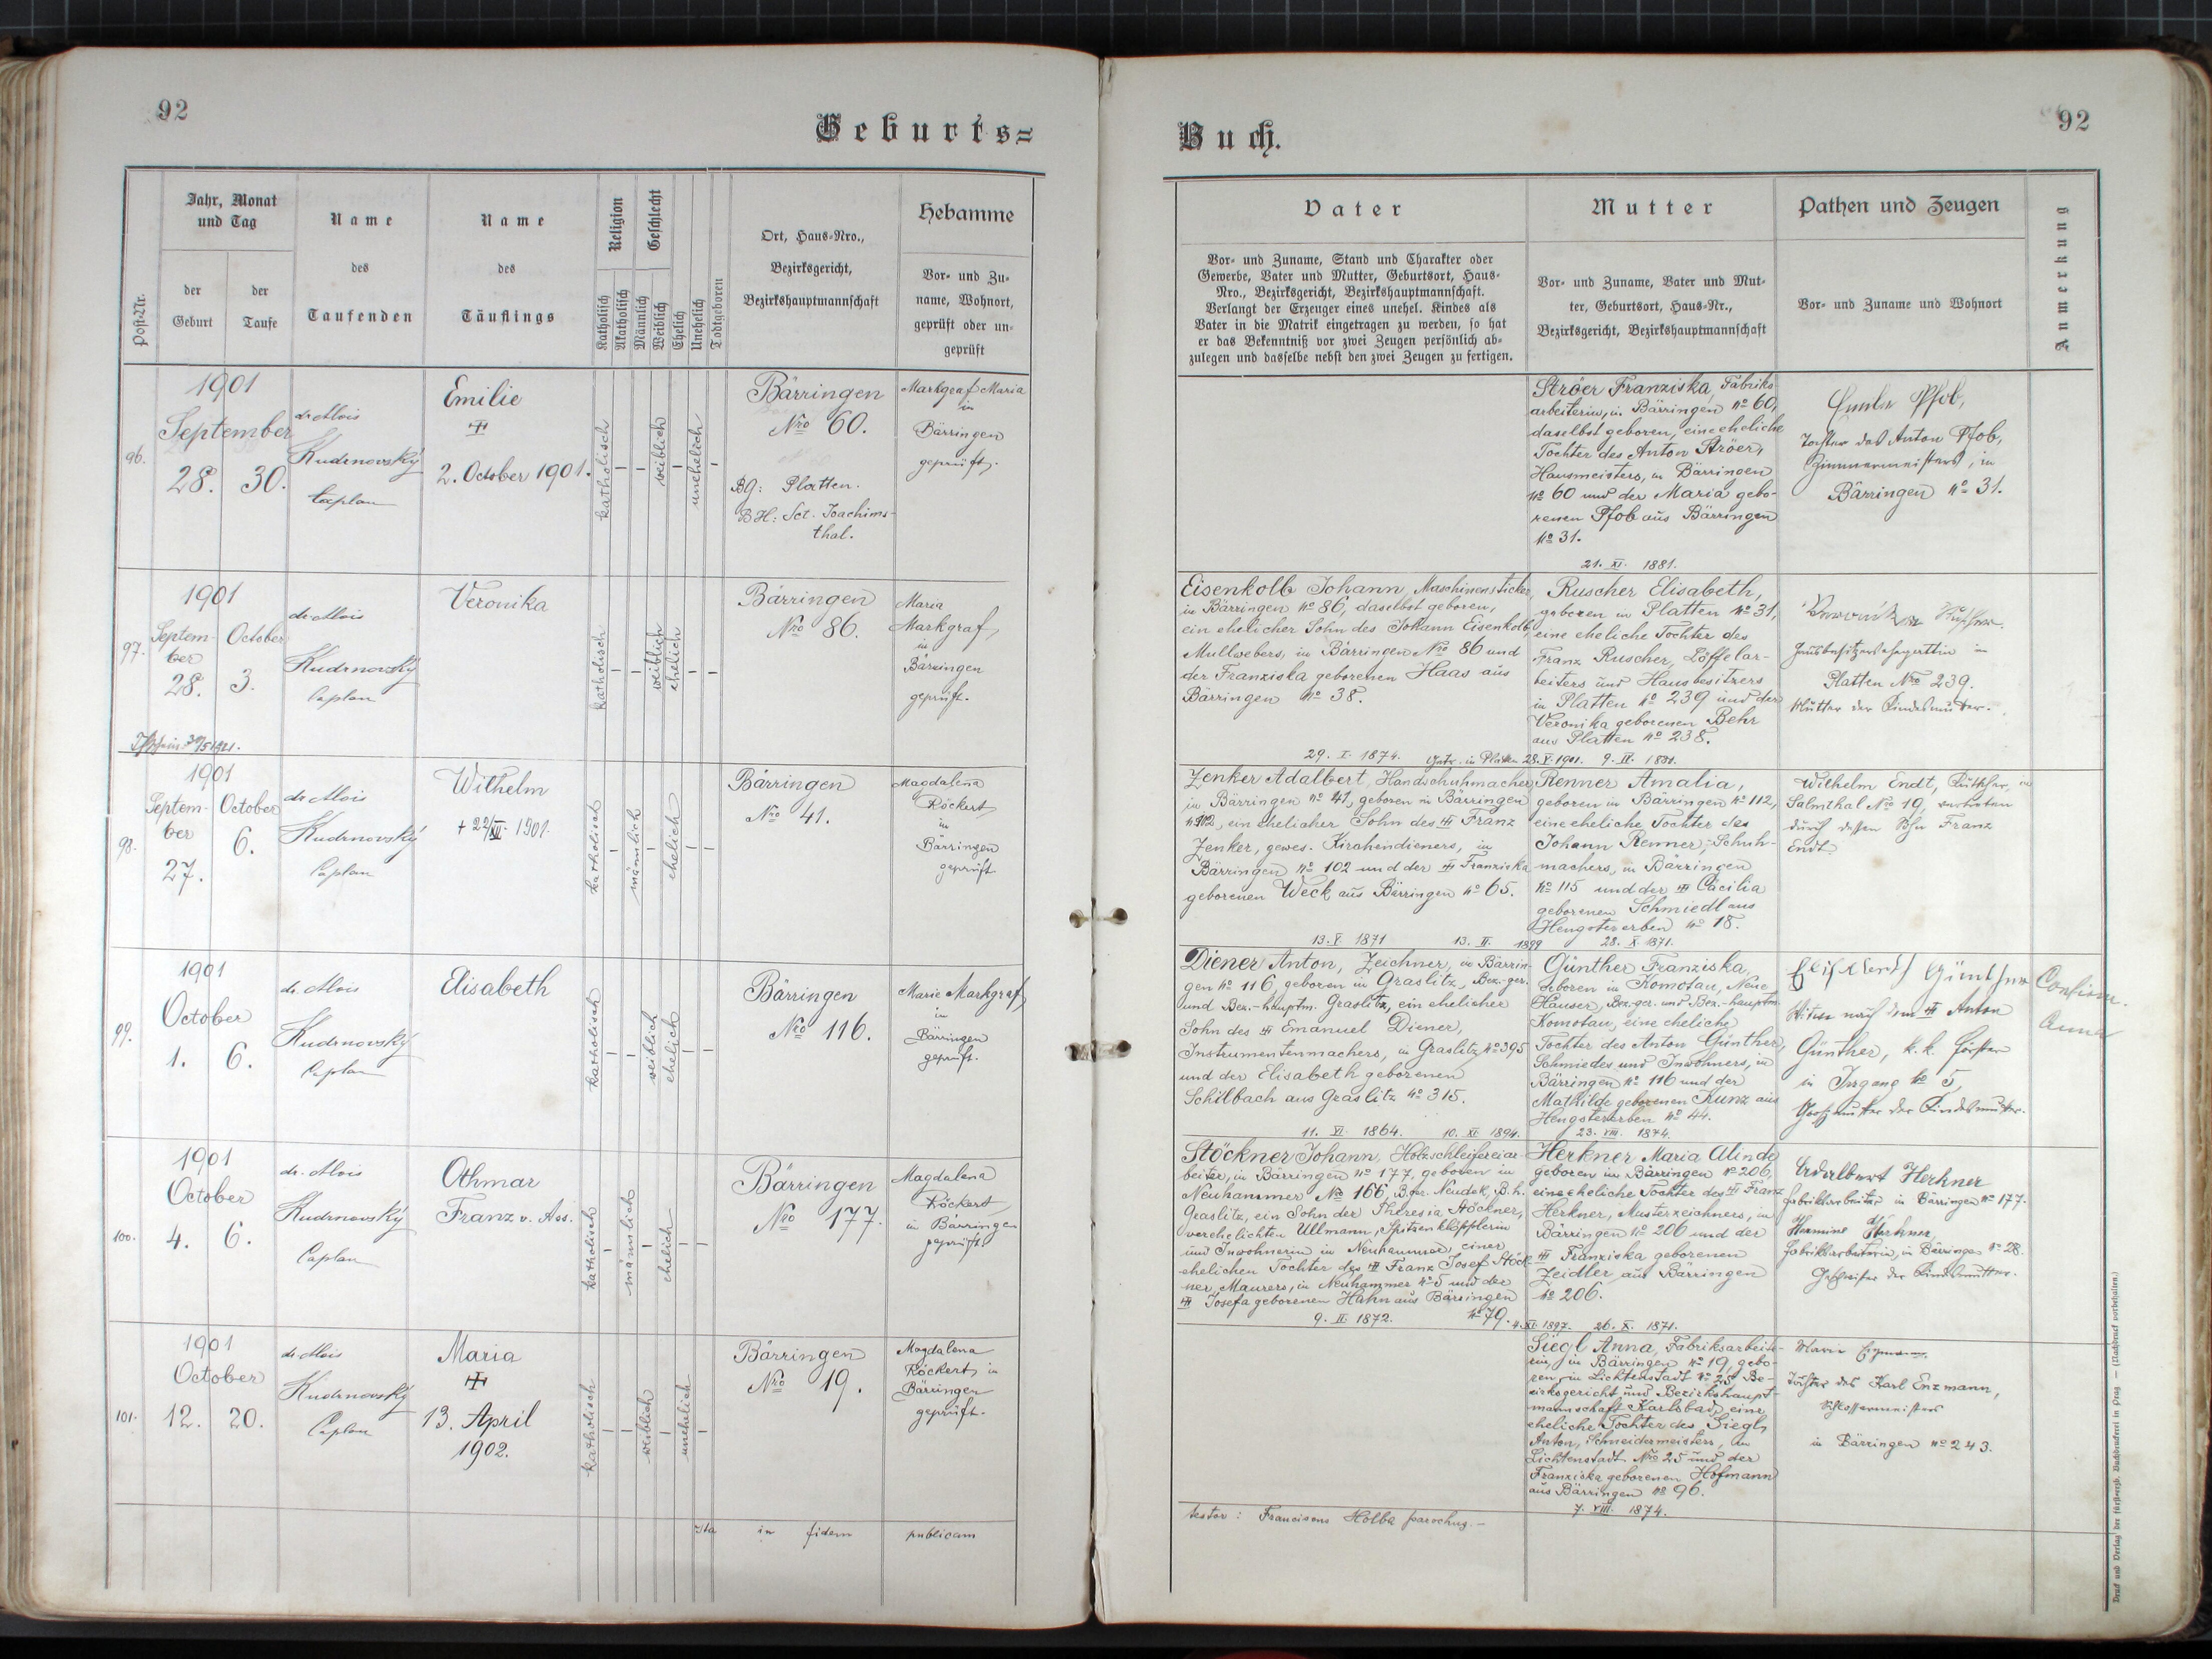 92
Geburts=
Post-Nr.
Jahr, Monat
und Tag
der
Geburt
der
Taufe
Name
des
Taufenden
Name
des
Täuflings
Religion
Katholisch
Akatholisch
Geschlecht
Männlich
Weiblich
Ehelich
Unehelich
Todtgeboren
Ort, Haus-Nro.,
Bezirksgericht,
Bezirkshauptmannschaft
Hebamme
Vor- und Zu-
name, Wohnort,
geprüft oder un-
geprüft
96.
1901
September
28. 30.
dr. Alois
Kudrnovský
Caplan
Emilie
2. October 1901.
katholisch
weiblich
unehelich
Bärringen
Nro 60.
BG: Platten.
BH: Sct. Joachims-
thal.
Markgraf Maria
in
Bärringen
geprüft.
97.
1901
Septem-
ber
28.
October
3.
30/5 1921.
dr. Alois
Kudrnovský
Caplan
Veronika
katholisch
weiblich
ehelich
Bärringen
Nro 86.
Maria
Markgraf,
in
Bärringen
geprüft.
98.
1901
Septem-
ber
27.
October
6.
dr. Alois
Kudrnovský
Caplan
Wilhelm
+ 22/XII. 1901.
katholisch
männlich
ehelich
Bärringen
Nro 41.
Magdalena
Röckert
in
Bärringen
geprüft
99.
1901
October
1. 6.
dr. Alois
Kudrnovský
Caplan
Elisabeth
katholisch
weiblich
ehelich
Bärringen
Nro 116.
Marie Markgraf
in
Bärringen
geprüft.
100.
1901
October
4. 6.
dr. Alois
Kudrnovský
Caplan
Othmar
Franz v. Ass.
katholisch
männlich
ehelich
Bärringen
Nro 177.
Magdalena
Röckert
in Bärringen
geprüft.
101.
1901
October
12. 20.
dr. Alois
Kudrnovský
Caplan
Maria
13. April
1902.
katholisch
weiblich
unehelich
Bärringen
Nro 19.
Magdalena
Röckert, in
Bärringen
geprüft.
Ita in fidem publicam
Buch.
92
Vater
Vor- und Zuname, Stand und Charakter oder
Gewerbe, Vater und Mutter, Geburtsort, Haus-
Nro., Bezirksgericht, Bezirkshauptmannschaft.
Verlangt der Erzeuger eines unehel. Kindes als
Vater in die Matrik eingetragen zu werden, so hat
er das Bekenntniß vor zwei Zeugen persönlich ab-
zulegen und dasselbe nebst den zwei Zeugen zu fertigen.
Mutter
Vor- und Zuname, Vater und Mut-
ter, Geburtsort, Haus-Nr.,
Bezirksgericht, Bezirkshauptmannschaft
Pathen und Zeugen
Vor- und Zuname und Wohnort
Anmerkung
Ströer Franziska, Fabriks-
arbeiterin, in Bärringen No 60,
daselbst geboren, eine eheliche
Tochter des Anton Ströer,
Hausmeisters, in Bärringen
No 60 und der Maria gebo-
renen Pfob aus Bärringen
No 31.
21. XI. 1881.
Emilie Pfob,
Tochter des Anton Pfob,
Zimmermeisters, in
Bärringen No 31.
Eisenkolb Johann, Maschinensticker,
in Bärringen No 86, daselbst geboren,
ein ehelicher Sohn des Johann Eisenkolb,
Mullwebers, in Bärringen Nro 86 und
der Franziska geborenen Haas aus
Bärringen No 38.
29. I. 1874. Getr. in Platten 28. V. 1901.
Ruscher Elisabeth,
geboren in Platten No 31,
eine eheliche Tochter des
Franz Ruscher, Löffelar-
beiters und Hausbesitzers
in Platten No 239 und der
Veronika geborenen Behr
aus Platten No 238.
9. II. 1881.
Veronika Ruscher
Hausbesitzersehegattin in
Platten Nro 239.
Mutter der Kindesmutter.
Zenker Adalbert, Handschuhmacher,
in Bärringen No 41, geboren in Bärringen
No 102, ein ehelicher Sohn des Franz
Zenker, gewes. Kirchendieners, in
Bärringen No 102 und der Franziska
geborenen Weck aus Bärringen No 65.
13. V. 1871 13. II. 1899
Renner Amalia,
geboren in Bärringen No 112,
eine eheliche Tochter des
Johann Renner, Schuh-
machers, in Bärringen
No 115 und der Cäcilia
geborenen Schmiedl aus
Hengstererben No 18.
28. X. 1871.
Wilhelm Endt, in
Salmthal Nro 19, vertreten
durch dessen Sohn Franz
Endt.
Diener Anton, Zeichner, in Bärrin-
gen No 116, geboren in Graslitz, Bez.-ger.
und Bez.-hauptm. Graslitz, ein ehelicher
Sohn des Emanuel Diener,
Instrumentenmachers, in Graslitz No 395
und der Elisabeth geborenen
Schilbach aus Graslitz No 315.
11. VI. 1864. 10. XI. 1894.
Günther Franziska,
geboren in Komotau, Neue
Häuser, Bez.-ger. und Bez.-hauptm.
Komotau, eine eheliche
Tochter des Anton Günther,
Schmiedes und Inwohners, in
Bärringen No 116 und der
Mathilde geborenen Kunz aus
Hengstererben No 44.
23. VIII. 1874.
Elisabeth Günther
Witwe nach dem Anton
Günther, k. k. Förster
in Irrgang No 5,
Großmutter der Kindesmutter.
Confirm.
Anna
Stöckner Johann, Holzschleifereiar-
beiter, in Bärringen No 177, geboren in
Neuhammer No 166, B.ger. Neudek, B.h.
Graslitz, ein Sohn der Theresia Stöckner,
verehelichten Ullmann, Spitzenklöpplerin
und Inwohnerin in Neuhammer, einer
ehelichen Tochter des Franz Josef Stöck-
ner, Maurers, in Neuhammer No 5 und der
Josefa geborenen Hahn aus Bärringen
No 79.
9. II. 1872. 4. XI. 1897.
Herkner Maria Alinde
geboren in Bärringen No 206,
eine eheliche Tochter des Franz
Herkner, Musterzeichners, in
Bärringen No 206 und der
Franziska geborenen
Zeidler aus Bärringen
No 206.
26. X. 1871.
Adalbert Herkner
Fabriksarbeiter in Bärringen No 177.
Hermine Herkner,
Fabriksarbeiterin, in Bärringen No 28.
Geschwister der Kindesmutter.
Siegl Anna, Fabriksarbeite-
rin, in Bärringen No 19, gebo-
ren in Lichtenstadt No 25 Be-
zirksgericht und Bezirkshaupt-
mannschaft Karlsbad, eine
eheliche Tochter des Siegl
Anton, Schneidermeisters, in
Lichtenstadt Nro 25 und der
Franziska geborenen Hofmann
aus Bärringen No 96.
7. VIII. 1874.
Marie Enzmann,
Tochter des Karl Enzmann,
Schlossermeisters
in Bärringen No 243.
testor: Franciscus Holba parochus.-
Druck und Verlag der fürsterzb. Buchdruckerei in Prag — (Nachdruck vorbehalten.)